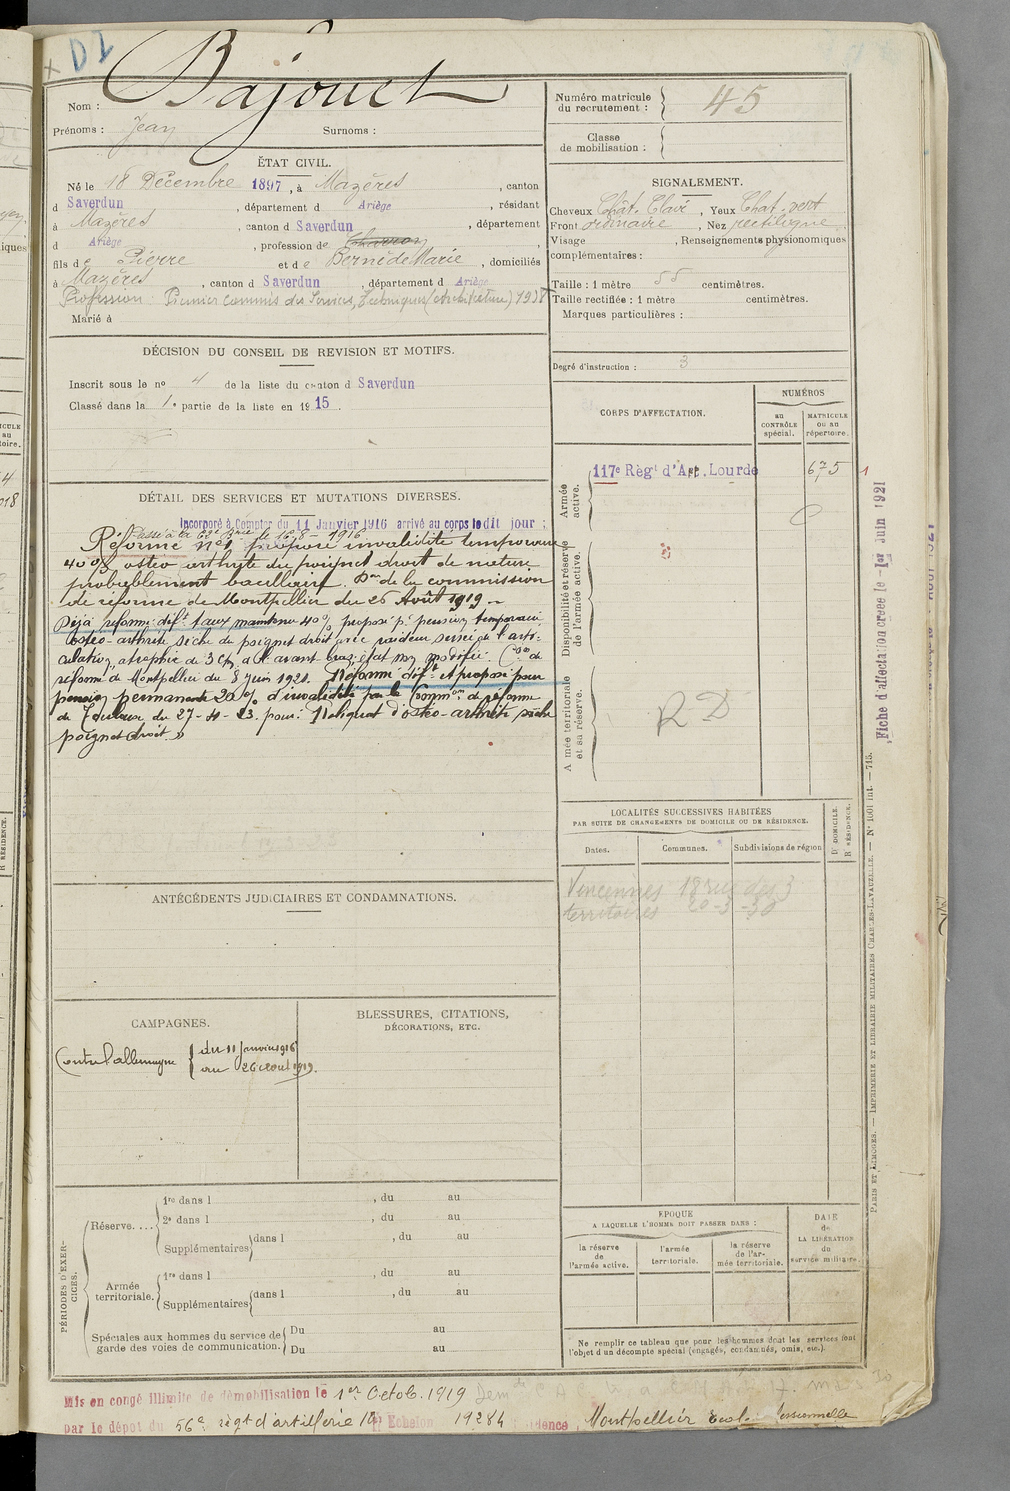 D1
Nom : Bajouet
Prénoms : Jean Surnoms :
Numéro matricule du recrutement : 45
Classe de mobilisation :
ÉTAT CIVIL.
Né le 18 Décembre 1897, à Mazères, canton
d Saverdun, département d Ariège, résidant
à Mazères, canton d Saverdun, département
d Ariège, profession de Charron,
fils de Pierre et de Berné de Marie, domiciliés
à Mazères, canton d Saverdun, département d Ariège
Profession : Premier commis des Services Techniques (Architecture) 1938
Marié à
SIGNALEMENT.
Cheveux Chât. Clair, Yeux Chat. vert
Front ordinaire, Nez rectiligne
Visage , Renseignements physionomiques
complémentaires :
Taille : 1 mètre 55 centimètres.
Taille rectifiée : 1 mètre centimètres.
Marques particulières :
Degré d'instruction : 3
DÉCISION DU CONSEIL DE REVISION ET MOTIFS.
Inscrit sous le nº 4 de la liste du canton d Saverdun
Classé dans la 1e partie de la liste en 1915.
CORPS D'AFFECTATION.
NUMÉROS
au CONTRÔLE spécial.
MATRICULE ou au répertoire.
Armée active.
117e Règt d'Art. Lourde 675
Disponibilité et réserve de l'armée active.
Armée territoriale et sa réserve.
R D
Fiche d'affectation créée le 1er Juin 1921
DÉTAIL DES SERVICES ET MUTATIONS DIVERSES.
Incorporé à Compter du 11 Janvier 1916 arrivé au corps le dit jour ;
Passé à la 63e Brie le 16-8-1916
Réformé nº1 proposé invalidité temporaire
40% ostéo arthrite du poignet droit de nature
probablement bacillaire. Don de la commission
de réforme de Montpellier du 26 Août 1919.
Déjà réformé déft 1 avec maintenu 40% proposé pr pension temporaire
ostéo-arthrite sèche du poignet droit avec raideur serrée de l'arti-
culation, atrophie de 3 c/m, de l'avant bras, état non modifié. Con de
réforme de Montpellier du 8 Juin 1921. Réformé déft et proposé pour
pension permanente 20% d'invalidité par la Common de réforme
de Toulouse du 27-4-23. pour : Reliquat d'ostéo-arthrite sèche
poignet droit.
LOCALITÉS SUCCESSIVES HABITÉES
PAR SUITE DE CHANGEMENTS DE DOMICILE OU DE RÉSIDENCE.
Dates. Communes. Subdivisions de région
D DOMICILE. R RÉSIDENCE.
Vincennes 18 rue des 3
territoires 20-3-30
ANTÉCÉDENTS JUDICIAIRES ET CONDAMNATIONS.
CAMPAGNES.
Contre l'allemagne { du 11 Janvier 1916
au 26 août 1919.
BLESSURES, CITATIONS,
DÉCORATIONS, ETC.
PÉRIODES D'EXERCICES.
Réserve....
1re dans l , du au
2e dans l , du au
Supplémentaires dans l , du au
Armée territoriale.
1re dans l , du au
Supplémentaires dans l , du au
Spéciales aux hommes du service de garde des voies de communication.
Du au
Du au
ÉPOQUE
A LAQUELLE L'HOMME DOIT PASSER DANS :
la réserve de l'armée active.
l'armée territoriale.
la réserve de l'armée territoriale.
DATE de LA LIBÉRATION du service militaire.
Ne remplir ce tableau que pour les hommes dont les services font
l'objet d'un décompte spécial (engagés, condamnés, omis, etc.).
PARIS ET LIMOGES. — IMPRIMERIE ET LIBRAIRIE MILITAIRES CHARLES-LAVAUZELLE. — Nº 1001 int. — 715.
Mis en congé illimité de démobilisation le 1er Octob. 1919
par le dépôt du 56e règt d'artillerie Echelon 19284 Montpellier